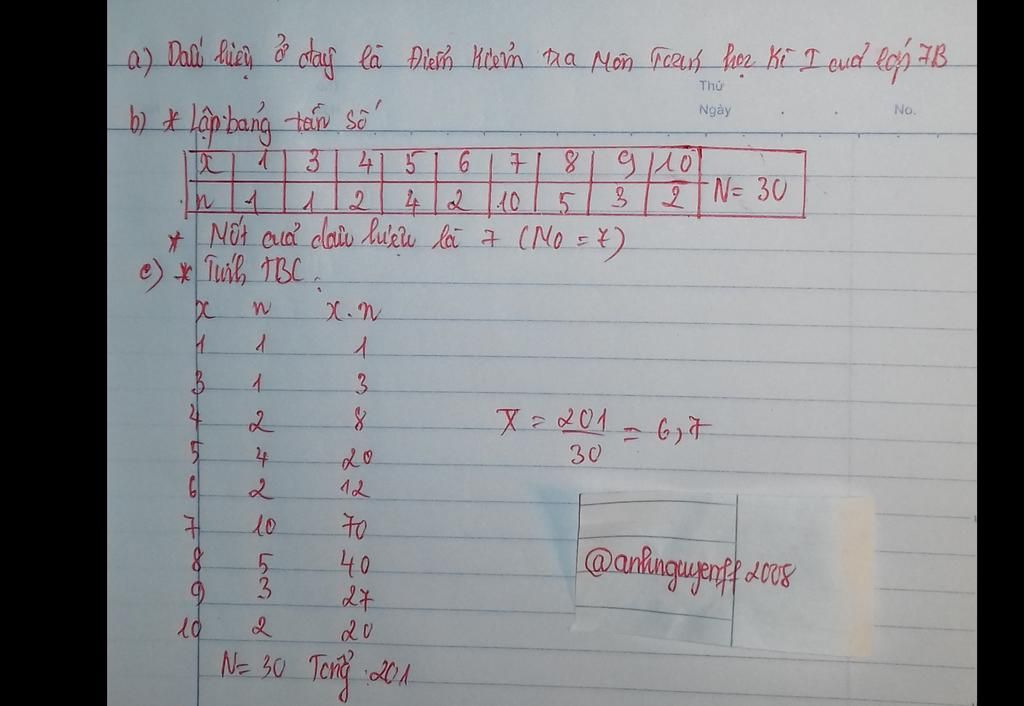 a) Dấu hiệu ở đây là Điểm Kiểm tra Môn Toán học Kì I của lớp 7B
Thứ
Ngày . . No.
b) * Lập bảng tần số
x 1 3 4 5 6 7 8 9 10 N= 30
n 1 1 2 4 2 10 5 3 2
* Mốt của dấu hiệu là 7 (Mo = 7)
c) * Tính TBC:
x n x.n
1 1 1
3 1 3
4 2 8
5 4 20
6 2 12
7 10 70
8 5 40
9 3 27
10 2 20
N= 30 Tổng: 201
X = 201/30 = 6,7
@anhnguyenff2008